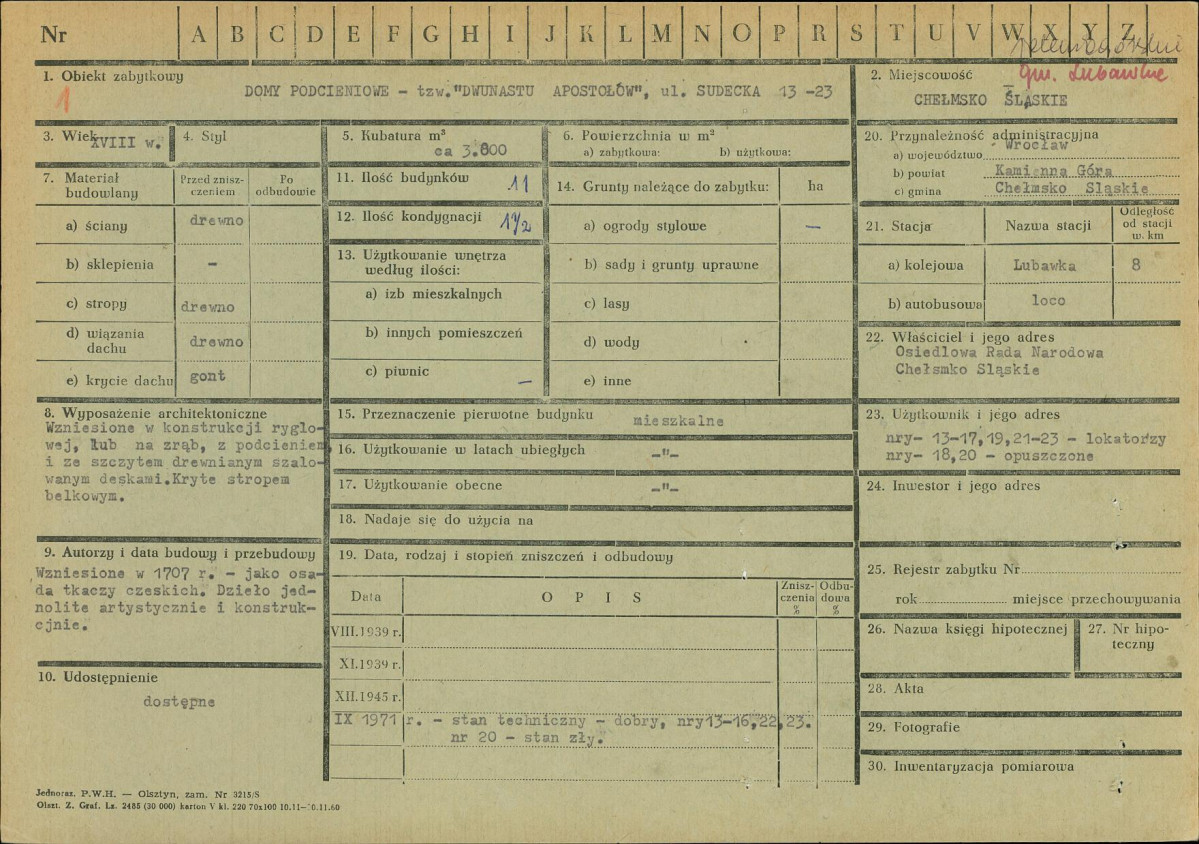 Nr A B C D E F G H I J K L M N O P R S T U V W X Y Z
gm. Lubawka
1. Obiekt zabytkowy
1
DOMY PODCIENIOWE - tzw."DWUNASTU APOSTOŁÓW", ul. SUDECKA 13 -23
2. Miejscowość
CHEŁMSKO ŚLĄSKIE
3. Wiek
XVIII w.
4. Styl
5. Kubatura m³
ca 3.800
6. Powierzchnia w m²
a) zabytkowa: b) użytkowa:
7. Materiał budowlany
Przed zniszczeniem
Po odbudowie
a) ściany drewno
b) sklepienia -
c) stropy drewno
d) wiązania dachu drewno
e) krycie dachu gont
8. Wyposażenie architektoniczne
Wzniesione w konstrukcji ryglo-
wej, lub na zrąb, z podcieniem
i ze szczytem drewnianym szalo-
wanym deskami.Kryte stropem
belkowym.
9. Autorzy i data budowy i przebudowy
Wzniesione w 1707 r. - jako osa-
da tkaczy czeskich. Dzieło jed-
nolite artystycznie i konstruk-
cjnie.
10. Udostępnienie
dostępne
11. Ilość budynków 11
12. Ilość kondygnacji 1½
13. Użytkowanie wnętrza
według ilości:
a) izb mieszkalnych
b) innych pomieszczeń
c) piwnic —
14. Grunty należące do zabytku: ha
a) ogrody stylowe —
b) sady i grunty uprawne
c) lasy
d) wody
e) inne
15. Przeznaczenie pierwotne budynku mieszkalne
16. Użytkowanie w latach ubiegłych -"-
17. Użytkowanie obecne -"-
18. Nadaje się do użycia na
19. Data, rodzaj i stopień zniszczeń i odbudowy
Data O P I S Zniszczenia % Odbudowa %
VIII.1939 r.
XI.1939 r.
XII.1945 r.
IX 1971 r. - stan techniczny - dobry, nry13-16,22,23.
nr 20 - stan zły.
20. Przynależność administracyjna
a) województwo Wrocław
b) powiat Kamienna Góra
c) gmina Chełmsko Sląskie
21. Stacja Nazwa stacji Odległość od stacji w. km
a) kolejowa Lubawka 8
b) autobusowa loco
22. Właściciel i jego adres
Osiedlowa Rada Narodowa
Chełsmko Sląskie
23. Użytkownik i jego adres
nry- 13-17,19,21-23 - lokatorzy
nry- 18,20 - opuszczone
24. Inwestor i jego adres
25. Rejestr zabytku Nr
rok miejsce przechowywania
26. Nazwa księgi hipotecznej
27. Nr hipoteczny
28. Akta
29. Fotografie
30. Inwentaryzacja pomiarowa
Jednoraz. P.W.H. — Olsztyn, zam. Nr 3215/S
Olszt. Z. Graf. Lz. 2485 (30 000) karton V kl. 220 70x100 10.11— 0.11.60